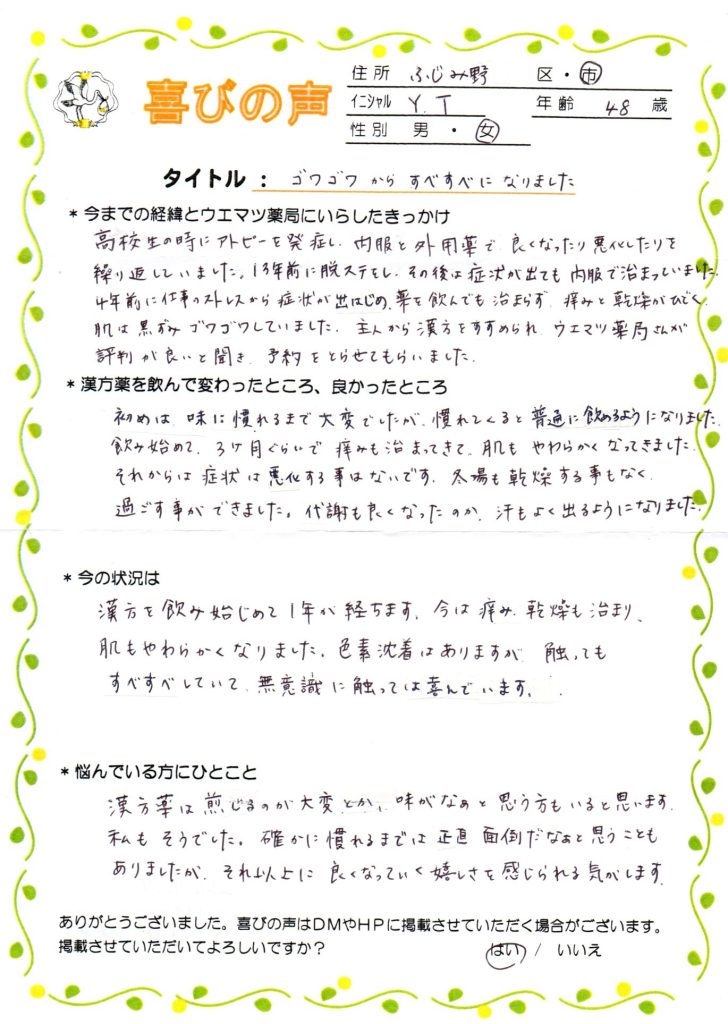 喜びの声
住所 ふじみ野 区・市
イニシャル Y.T 年齢 48 歳
性別 男・女
タイトル : ゴワゴワからすべすべになりました
* 今までの経緯とウエマツ薬局にいらしたきっかけ
高校生の時にアトピーを発症し、内服と外用薬で良くなったり悪化したりを
繰り返していました。13年前に脱ステをし、その後は症状が出ても内服で治まっていました。
4年前に仕事のストレスから症状が出はじめ、薬を飲んでも治まらず、痒みと乾燥がひどく、
肌は黒ずみゴワゴワしていました。主人から漢方をすすめられ、ウエマツ薬局さんが
評判が良いと聞き、予約をとらせてもらいました。
* 漢方薬を飲んで変わったところ、良かったところ
初めは、味に慣れるまで大変でしたが、慣れてくると普通に飲めるようになりました。
飲み始めて、3ヶ月ぐらいで痒みも治まってきて、肌もやわらかくなってきました。
それからは症状は悪化する事はないです。冬場も乾燥する事もなく、
過ごす事ができました。代謝も良くなったのか、汗もよく出るようになりました。
* 今の状況は
漢方を飲み始じめて1年が経ちます。今は痒み、乾燥も治まり、
肌もやわらかくなりました。色素沈着はありますが、触っても
すべすべしていて、無意識に触っては喜んでいます。
* 悩んでいる方にひとこと
漢方薬は煎じるのが大変とか、味がなぁと思う方もいると思います。
私もそうでした。確かに慣れるまでは正直面倒だなぁと思うことも
ありましたが、それ以上に良くなっていく嬉しさを感じられる気がします。
ありがとうございました。喜びの声はDMやHPに掲載させていただく場合がございます。
掲載させていただいてよろしいですか? はい / いいえ